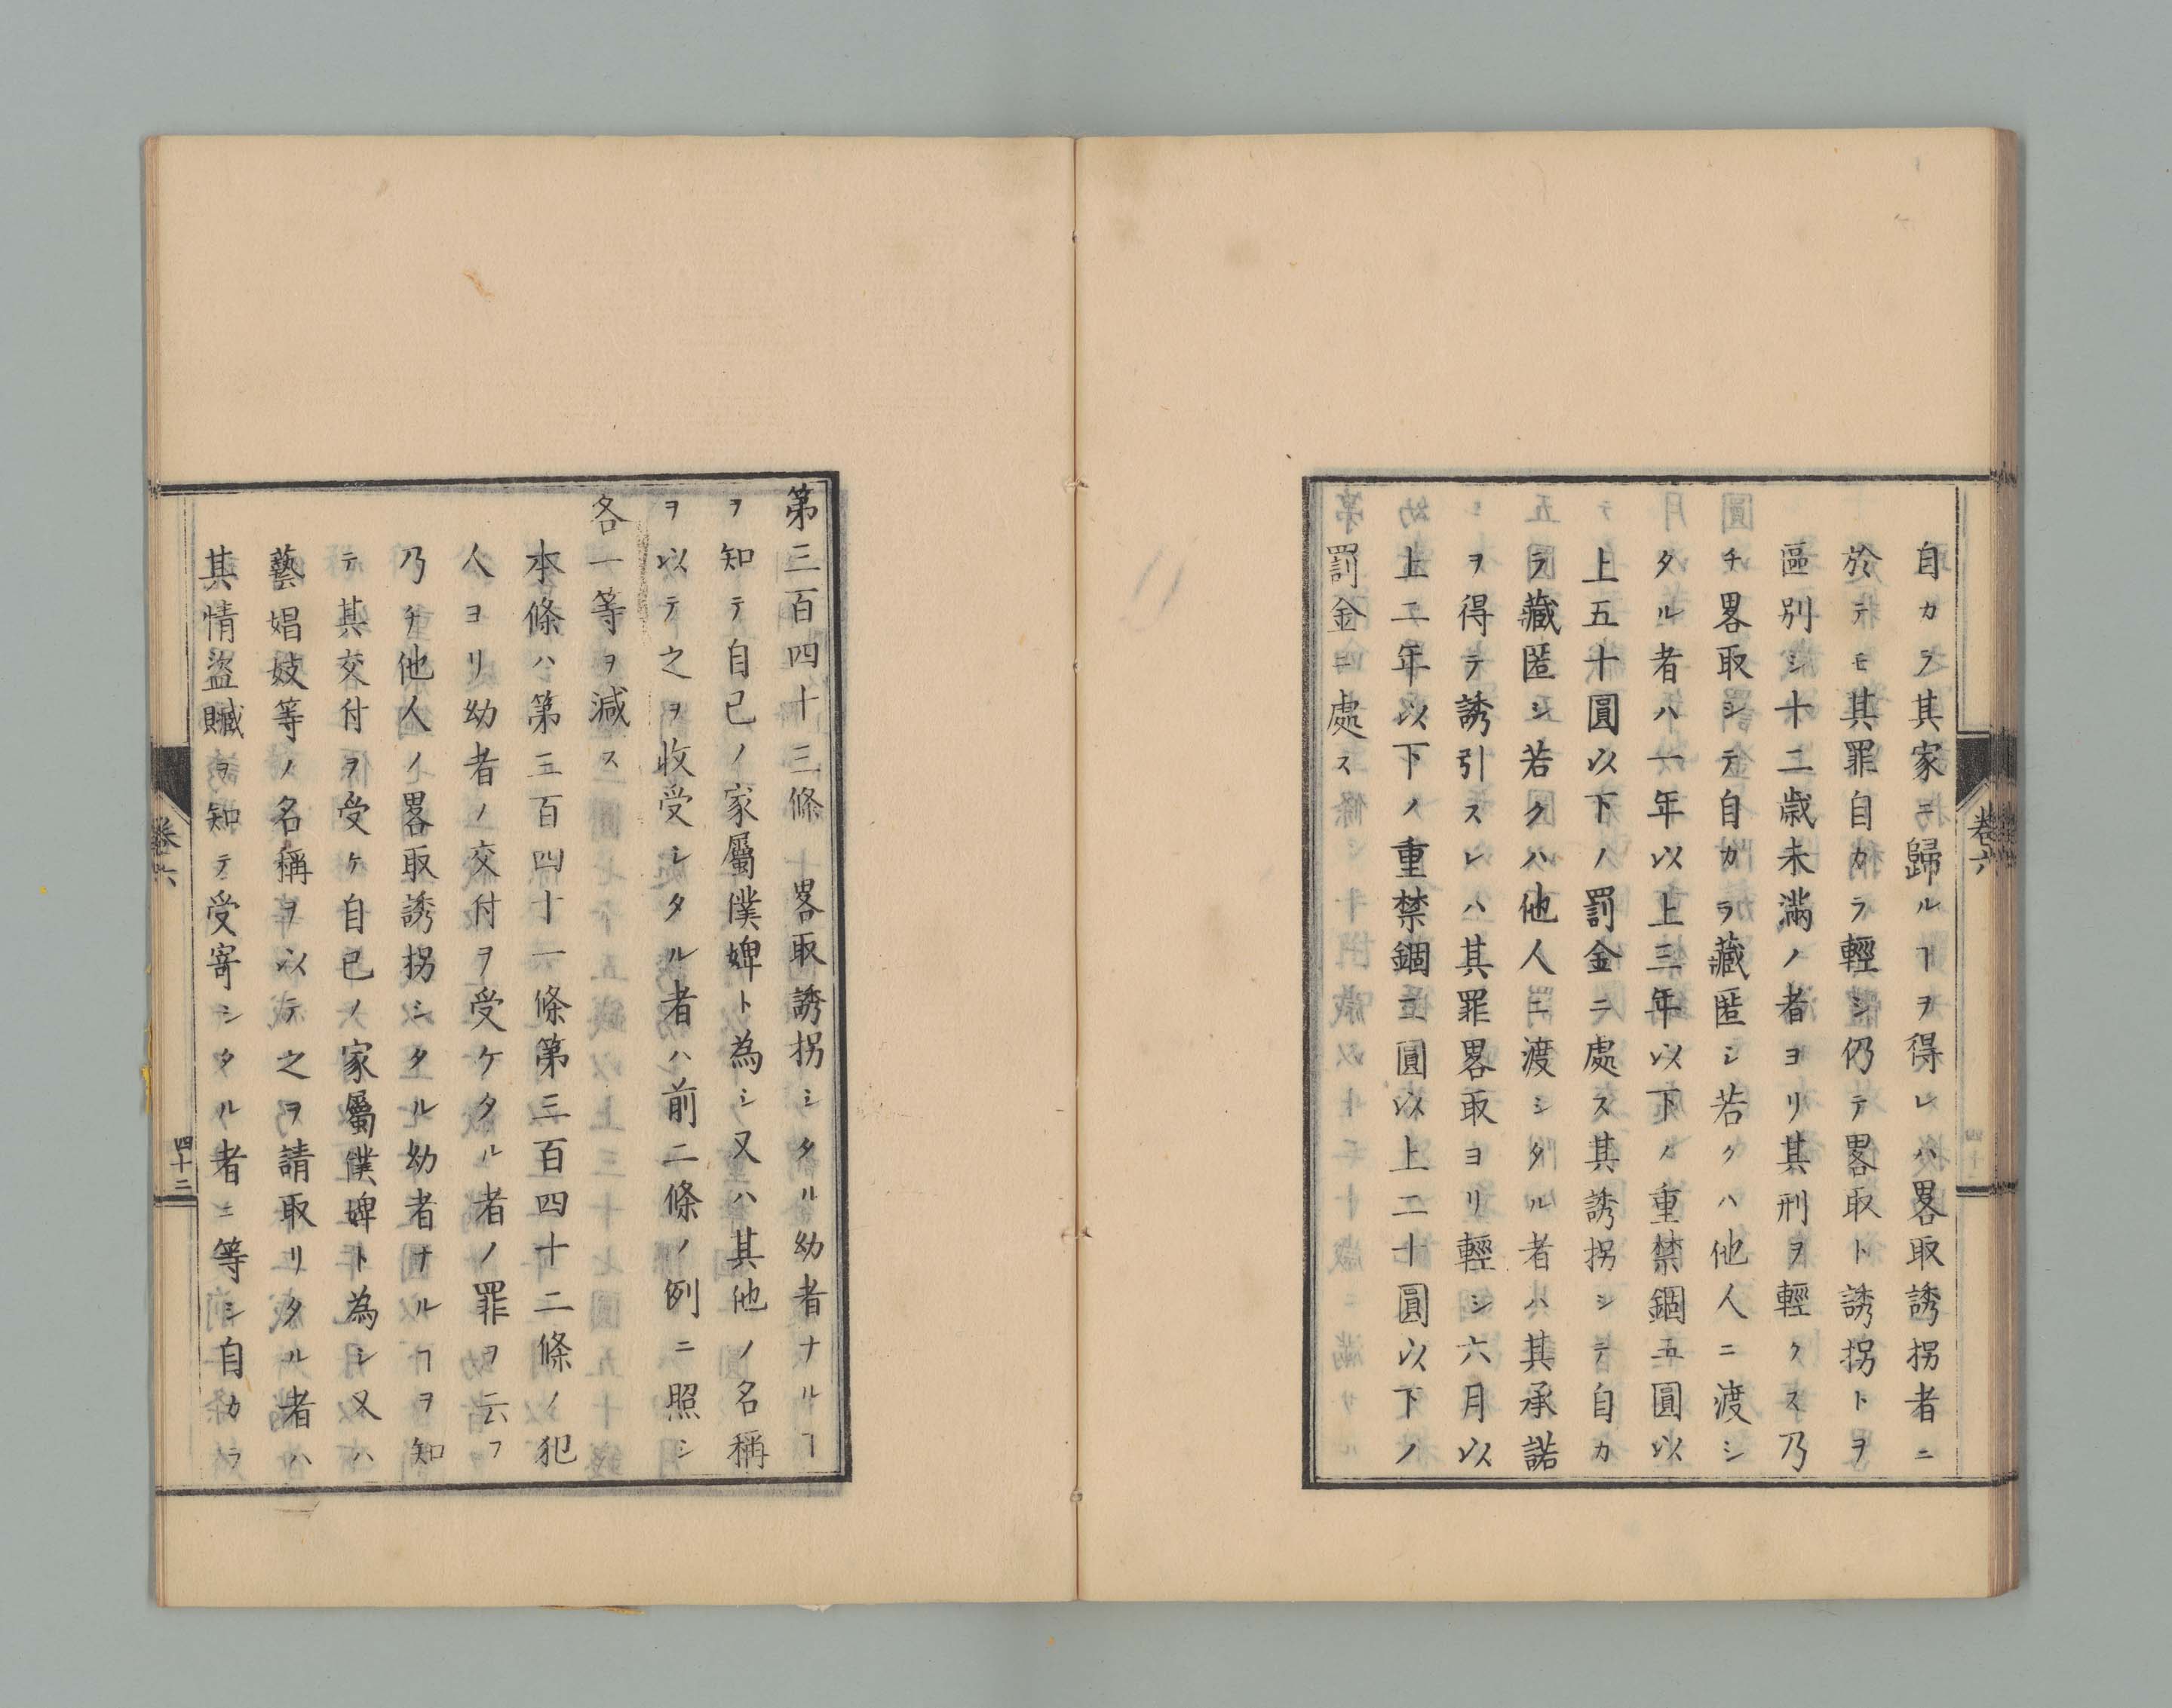 自カラ其家ニ歸ルヿヲ得レハ畧取誘拐者ニ
於テモ其罪自カラ輕シ仍テ畧取ト誘拐トヲ
區別シ十二歳未滿ノ者ヨリ其刑ヲ輕クス乃
チ畧取シテ自カラ藏匿シ若クハ他人ニ渡シ
タル者ハ一年以上三年以下ノ重禁錮五圓以
上五十圓以下ノ罰金ニ處ス其誘拐シテ自カ
ラ藏匿シ若クハ他人ニ渡シタル者ハ其承諾
ヲ得テ誘引スレハ其罪畧取ヨリ輕シ六月以
上二年以下ノ重禁錮二圓以上二十圓以下ノ
罰金ニ處ス
卷六
第三百四十三條 畧取誘拐シタル幼者ナルヿ
ヲ知テ自己ノ家屬僕婢ト為シ又ハ其他ノ名稱
ヲ以テ之ヲ收受シタル者ハ前二條ノ例ニ照シ
各一等ヲ減ス
本條ハ第三百四十一條第三百四十二條ノ犯
人ヨリ幼者ノ交付ヲ受ケタル者ノ罪ヲ云フ
乃チ他人ノ畧取誘拐シタル幼者ナルヿヲ知
テ其交付ヲ受ケ自己ノ家屬僕婢ト為シ又ハ
藝娼妓等ノ名稱ヲ以テ之ヲ請取リタル者ハ
其情盜贓ヲ知テ受寄シタル者ニ等シ自カラ
卷六
四十二